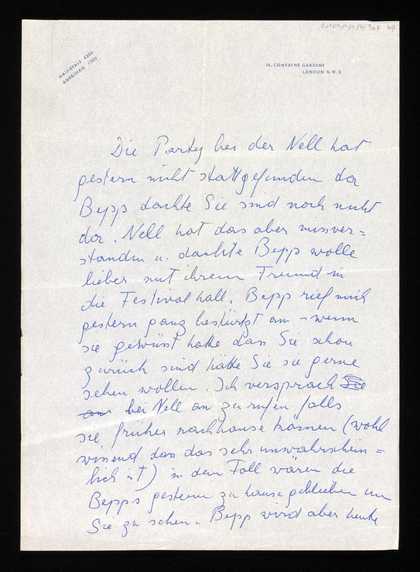 MAIDA VALE
LONDON N.W.6
Die Party bei der Nell hat
gestern nicht stattgefunden da
Bepp dachte Sie sind noch nicht
da. Nell hat das aber missver=
standen u. dachte Bepp wolle
lieber mit ihrem Freund in
die Festival hall. Bepp rief mich
gestern ganz bestürzt an – wenn
sie gewusst hätte dass Sie schon
zurück sind hätte Sie sie gerne
sehen wollen. Ich versprach Sie
bei Nell an zu rufen falls
sie früher nachhause kämen (wohl
wissend dass das sehr unwahrschein=
lich ist) in dem Fall wären die
Bepps gestern zu hause geblieben um
Sie zu sehen. Bepp wird aber heute